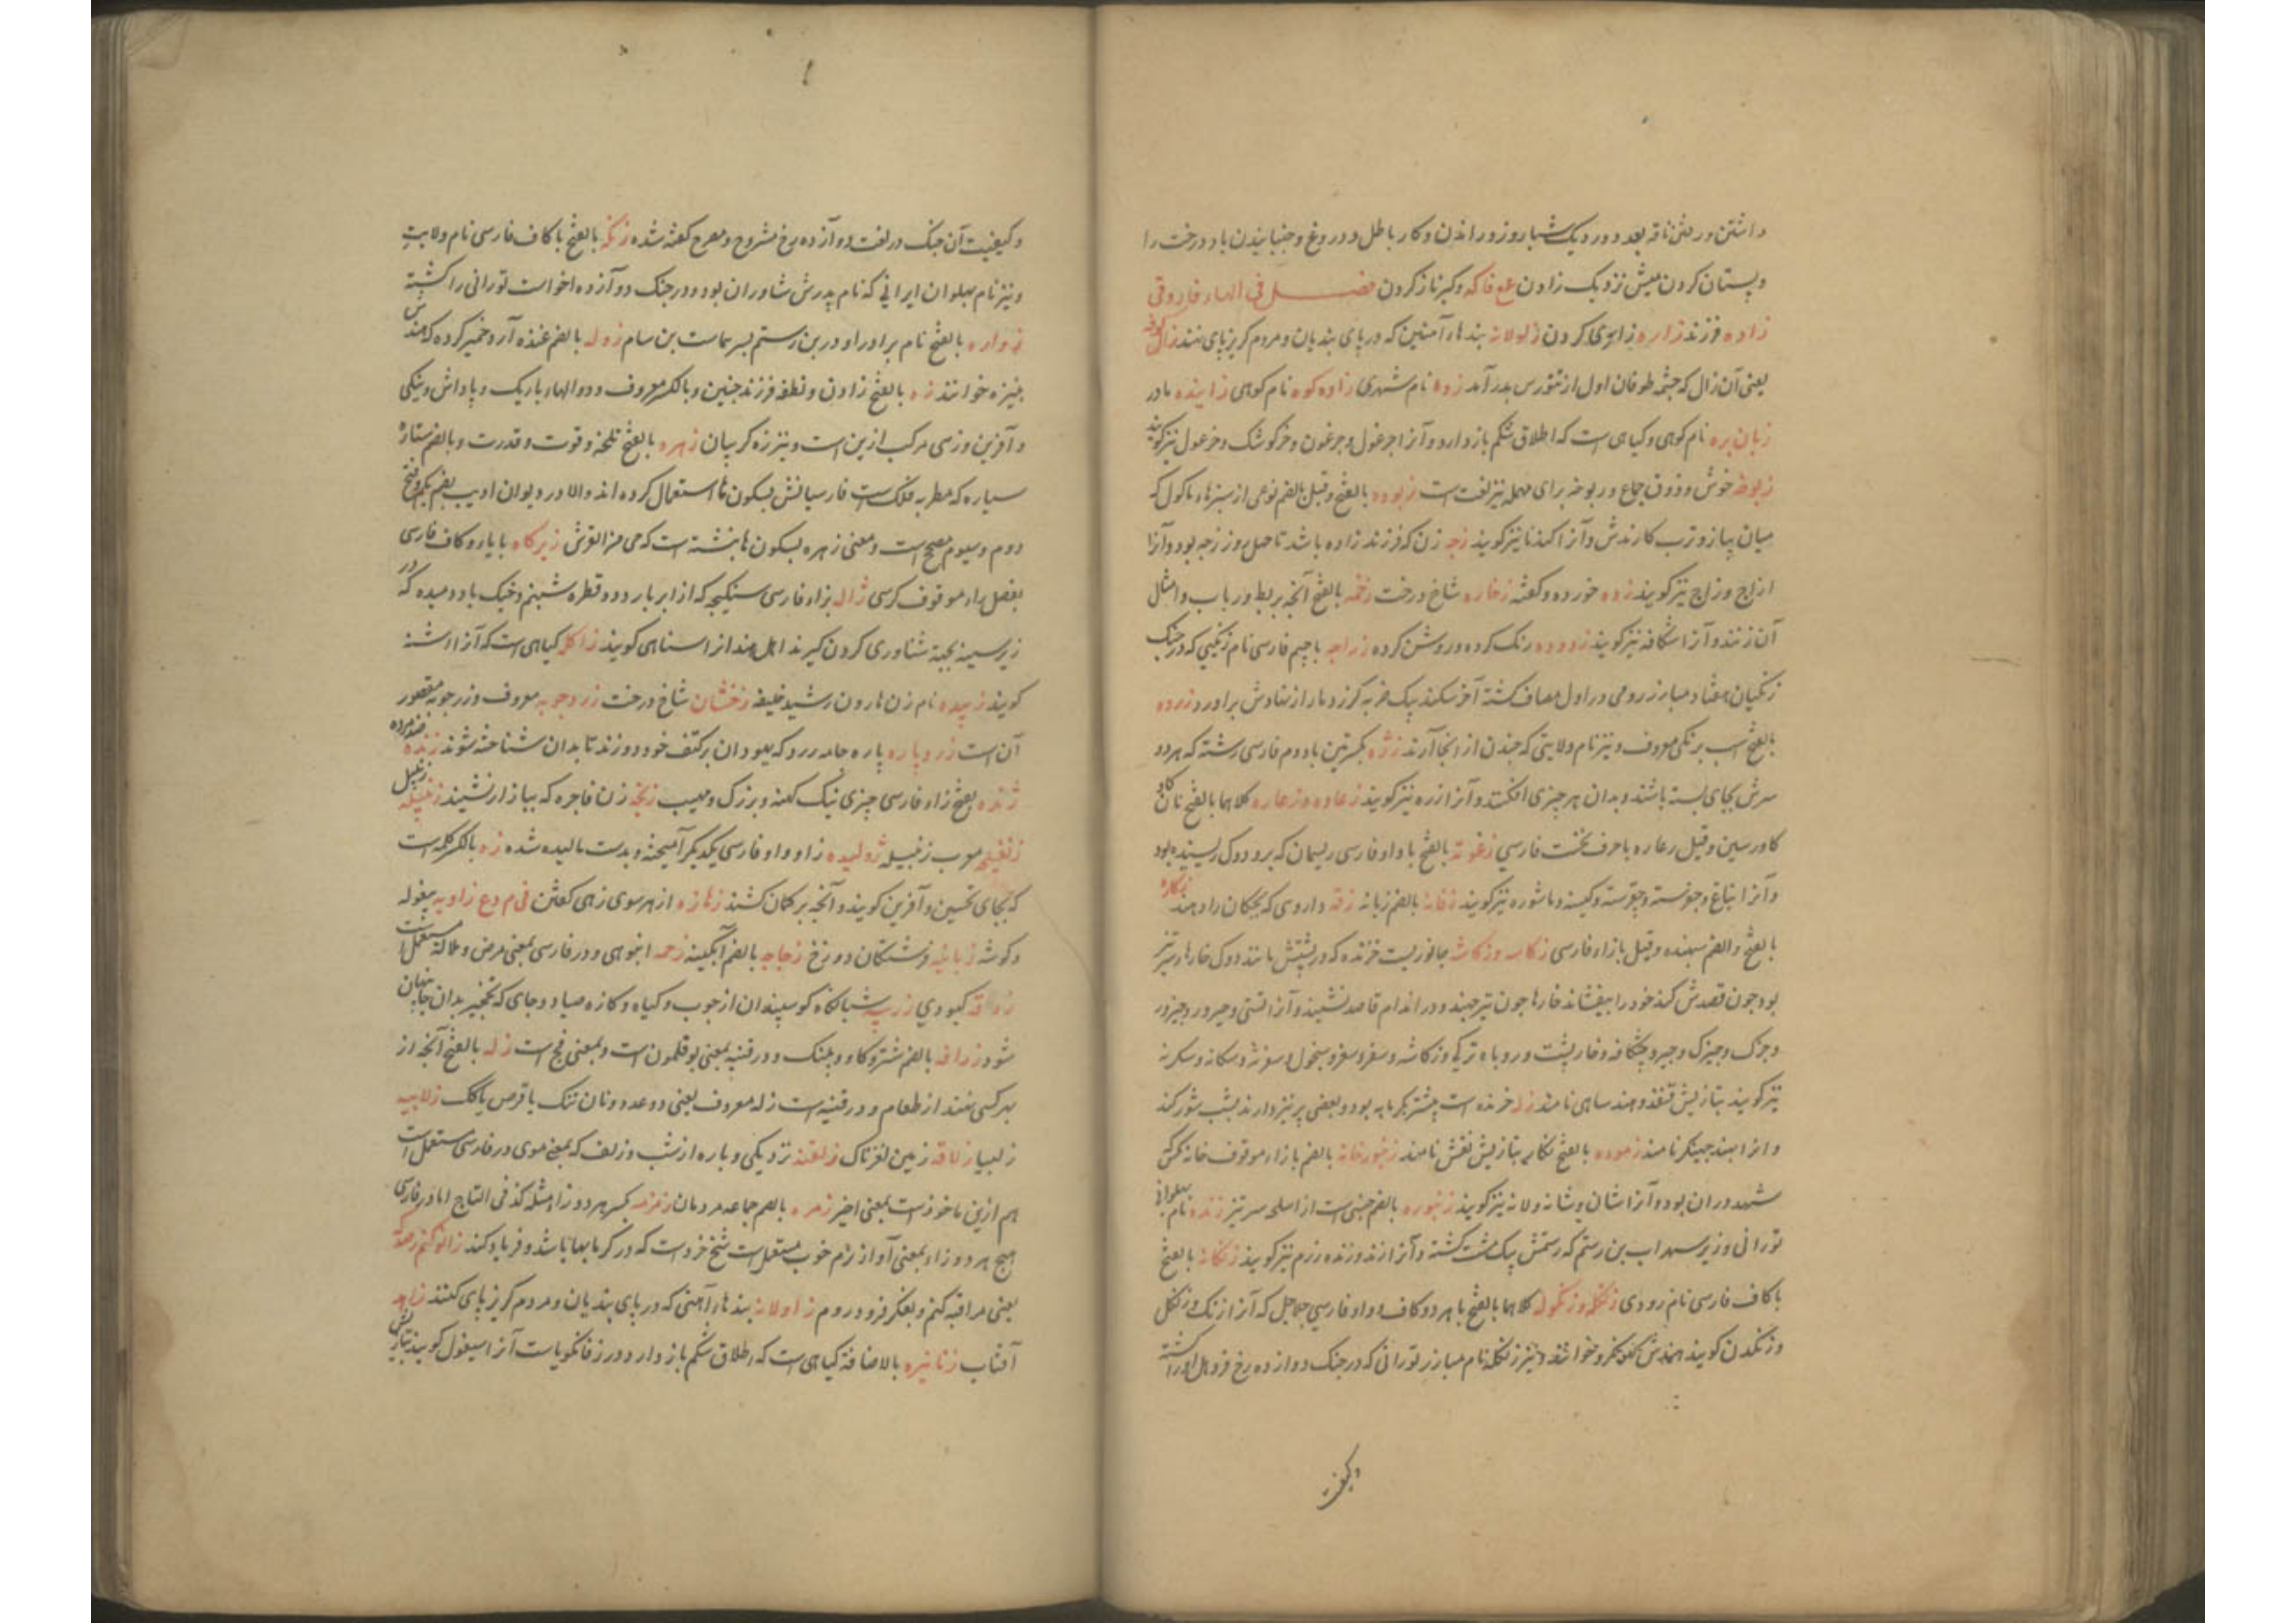 داشتن و رفتن ناقه بعد دو رد یک شباروز و راندن و کار باطل و دروغ و جنبانیدن باد درخت را
و پستان کردن میش نزدیک زادن ع ع فاکه و کبر ناز کردن فصل فی الهاء فاروقی
زاده فرزند زاره زاری کردن زاولانه بندهاء آهنین که در پای بندیان و مردم گریزپای نهند زال کوفه
یعنی آن زال که چشمه طوفان اول از تنورس بدر آمد زاوه نام شهری زاوه کوه نام کوهی زاینده مادر
زبان بره نام کوهی و گیاهی است که اطلاق شکم باز دارد و آنرا جرغول و جرغون و خرگوشک و خرغول نیز گویند
زبوخه خوش و ذوق جماع و ربوخه برای مهمله نیز لغت است زبوده بالفتح و قیل بالضم نوعی از سبزهاء ماکول که
میان پیاز و ترب کارندش و آنرا کندنا نیز گویند زجه زن که فرزند زاده باشد تا چهل روز زجه بود و آنرا
ازاج و زاج نیز گویند زده خورده و کفته زخاره شاخ درخت زخمه بالفتح آنچه بربط و رباب و امثال
آن زنند و آنرا شکافه نیز گویند زدوده رنگ کرده و روشن کرده زراجه باجیم فارسی نام زنگیی که در جنگ
زنگیان هفتاد مبارز رومی در اول مصاف کشته آخر سکندر بیک ضربه گرز دمار از نهادش برآورد زرده
بالفتح اسب برنگی معروف و نیز نام ولایتی که چندن از انجا آرند زژه بکسرتین با دوم فارسی رشته که هر دو
سرش بجای بسته باشند و بدان هر چیزی افکنند و آنرا ازره نیز گویند زعاوه و زعاره کلاهما بالفتح نان گاو
کاورسین و قیل رعاره باحرف نخست فارسی زغوته بالفتح با واو فارسی ریسمان که برو دوک ریسیده بود
و آنرا نباغ و جوسته و چوسته و کیسنه و ماشوره نیز گویند زفانه بالضم زبانه زقه داروی که بچگان را دهند زکاره
بالفتح والضم ستهنده و قیل بازاء فارسی زکاسه و زکاشه جانوریست خزنده که در پشتش مانند دوک خارهاء تیز
بود چون قصدش کنند خود را بیفشاند خارها چون تیر جهند و در اندام قاصد نشیند و آنرا تشی و جیرو و چیزو
و جزک و جیزک و جیرو و چکانه و خارپشت و روباه ترکی و زکاشه و سفر و سغر و سیخول و سغرنه و سکانه و سکرنه
نیز گویند بتازیش قنفذ و هند ساهی نامند زله خزنده است بیشتر بگرمابه بود و بعضی پر نیز دارند بشب شور کند
و آنرا بهند جهینگر نامند زموده بالفتح نگار بتازیش نقش نامند زنبورخانه بالضم بازاء موقوف خانه مگس
شهد دران بود و آنرا شان و شانه و لانه نیز گویند زنبوره بالضم جنسی است از اسلحه سرتیز زنده نام پهلوانی
تورانی وزیر سهراب بن رستم که رستمش بیک مشت کشته و آنرا زند و زنده رزم نیز گویند زنگانه بالفتح
با کاف فارسی نام رودی زنگله و زنگوله کلاهما بالفتح با هر دو کاف و واو فارسی جلاجل که آنرا زنگ و زنگل
و زنگدن گویند هندش گهونگرو خوانند و نیز زنگله نام مبارز تورانی که در جنگ دوازده رخ فروهل او را کشته
و کیفیت
و کیفیت آن جنگ در لغت دوآزده رخ مشروح و مصرح گفته شده زنگه بالفتح با کاف فارسی نام ولایت
و نیز نام پهلوان ایرانی که نام پدرش شاوران بود و در جنگ دوآزده اخواست تورانی را کشته
زواره بالفتح نام برادر او در بن رستم پسر سماست بن سام زوله بالضم غنده آرد خمیر کرده که هندش
پیزه خوانند زه بالفتح زادن و نطفه فرزند جنین و بالکسر معروف و دوالهاء باریک و پاداش و نیکی
و آفرین و زهی مرکب ازین است و نیز زه گریبان زهره بالفتح تلخه و قوت و قدرت و بالضم ستاره
سیاره که مطربه فلک است فارسیانش بسکون ها استعمال کرده اند والا در دیوان ادیب بضم یکم و فتح
دوم و سیوم مصحح است و معنی زهره بسکون ها نبشته است که هی من القوش زیرگاه بایاء و کاف فارسی
بفصل راء موقوف کرسی ژاله بزاء فارسی سنگیچه که از ابر بارد و قطره شبنم و خیک باد دمیده که در
زیر سینه بجهة شناوری کردن گیرند اهل هند آنرا سناهی گویند زاکل گیاهی است که آنرا اشنه
گویند زبیده نام زن هارون رشید خلیفه زخشان شاخ درخت زردجوبه معروف و زرجوبه مقصور
آن است زردپاره پاره جامه زرد که یهودان بر کتف خود دوزند تا بدان شناخته شوند زنده ضد مرده
ژنده بفتح زاء فارسی چیزی نیک کهنه و بزرگ و مهیب زنخه زن فاجره که ببازار نشیند زنبیله زنبیل
زنفیلجه معرب زنبیله ژولیده زا و واو فارسی بیکدیگر آمیخته و بدست مالیده شده زه بالکسر کلمه است
که بجای تحسین و آفرین گویند و آنچه بر کمان کشند زهازه از هر سوی زهی گفتن فی م ع زاویه بیغوله
و گوشه زبانیه فرشتگان دوزخ زجاجه بالضم آبگینه زحمه انبوهی و در فارسی بمعنی مرض و ملالة مستعمل است
زرقه کبودی زریبه شبانگاه گوسپندان از چوب و گیاه و کازه صیاد و جای که نخچیر بدان جا پنهان
شود زرافه بالضم شترگاو و پلنگ و در قنیه بمعنی بوقلمون است و بمعنی فج است زله بالفتح آنچه از
بهر کسی نهند از طعام و در قنیه است زله معروف یعنی دو عدد و نان تنک یا قرص یا کاک زلابیه
زلیبا زلاقه زمین لغزناک زلفه نزدیکی و پاره از شب و زلف که بمعنی موی در فارسی مستعمل است
هم ازین ماخوذست بمعنی اخیر زمره بالضم جماعه مردمان زمزمه بکسر هر دو زا مثله کذا فی التاج اما در فارسی
بفتح هر دو زاء بمعنی آواز نرم خوب مستعمل است ملخ خردست که در گرمابها باشد و فریاد کند زانو کنم رصد
یعنی مراقبه کنم و بفکر فرو روم زاولانه بندهاء آهنی که در پای بندیان و مردم گریزپای کنند زاهد
آفتاب زنانیره بالاضافة گیاهی است که اطلاق شکم باز دارد و در زفانگویاست آنرا اسپغول گویند بتازیش